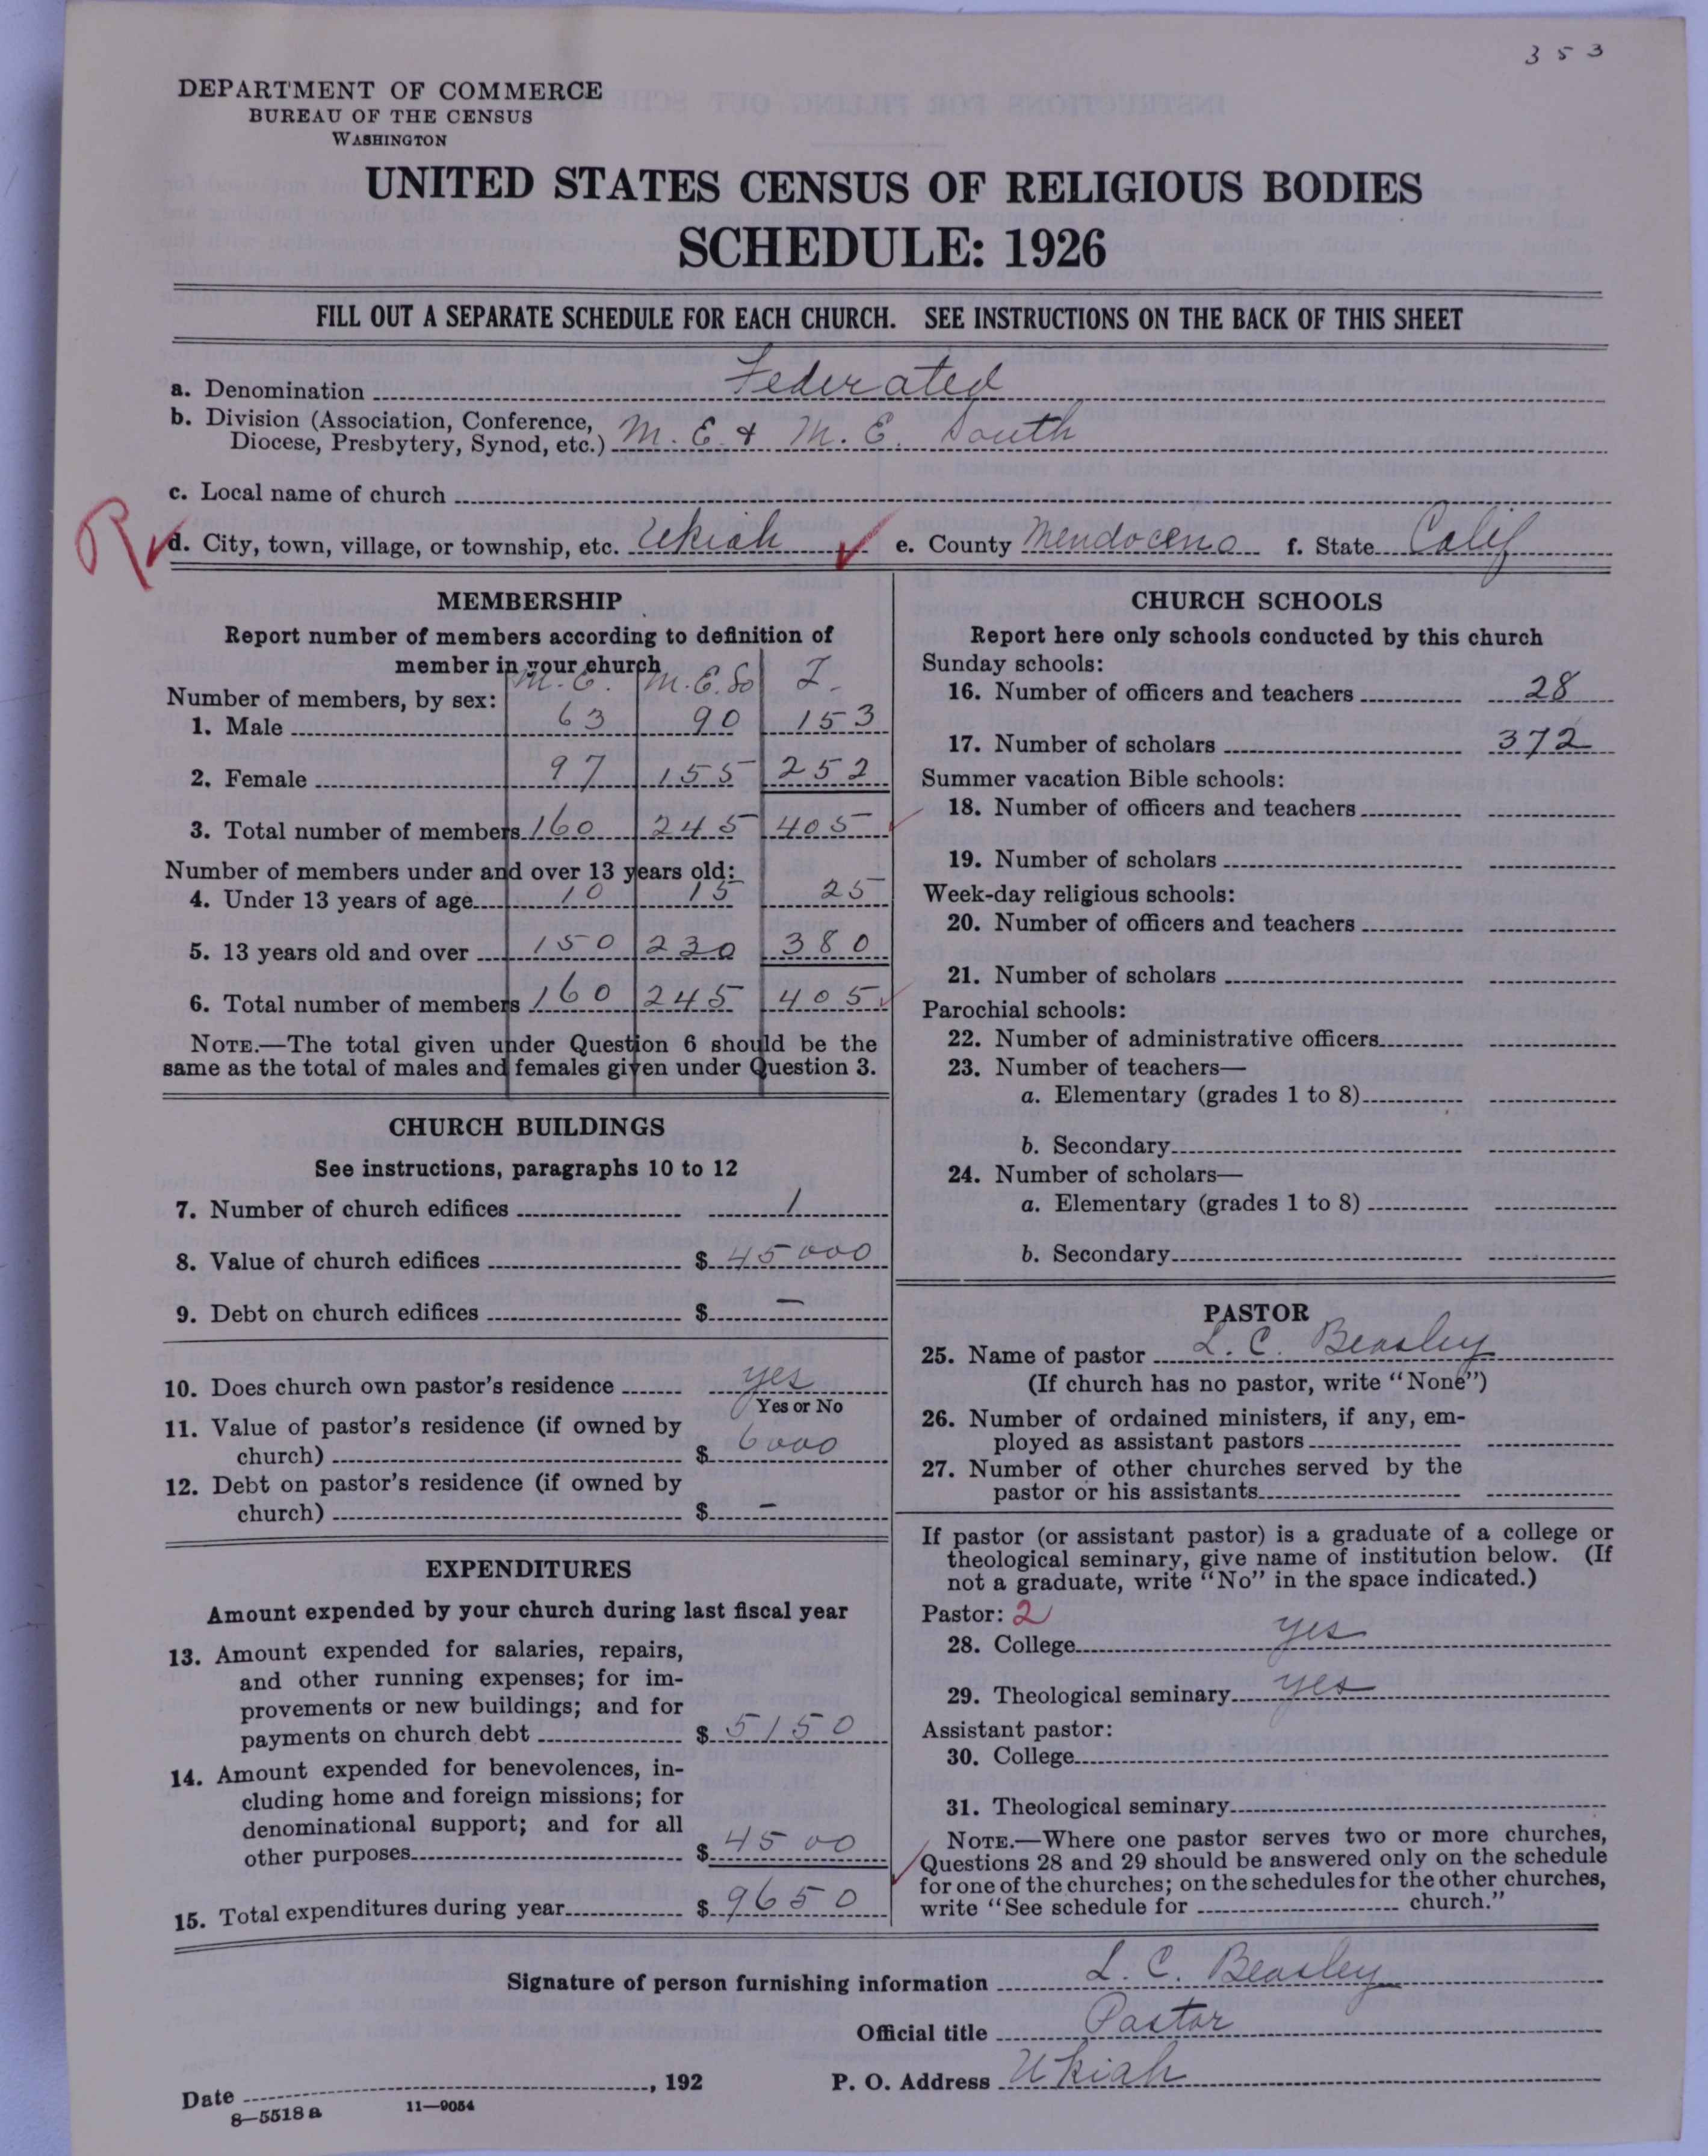 353
DEPARTMENT OF COMMERCE
BUREAU OF THE CENSUS
WASHINGTON
UNITED STATES CENSUS OF RELIGIOUS BODIES
SCHEDULE: 1926
FILL OUT A SEPARATE SCHEDULE FOR EACH CHURCH. SEE INSTRUCTIONS ON THE BACK OF THIS SHEET
a. Denomination Federated
b. Division (Association, Conference,
Diocese, Presbytery, Synod, etc.) M. E. & M. E. South
c. Local name of church
d. City, town, village, or township, etc. Ukiah e. County Mendoceno f. State Calif
MEMBERSHIP
Report number of members according to definition of
member in your church
M. E. M. E. So T.
Number of members, by sex:
1. Male 63 90 153
2. Female 97 155 252
3. Total number of members 160 245 405
Number of members under and over 13 years old:
4. Under 13 years of age 10 15 25
5. 13 years old and over 150 230 380
6. Total number of members 160 245 405
NOTE.—The total given under Question 6 should be the
same as the total of males and females given under Question 3.
CHURCH BUILDINGS
See instructions, paragraphs 10 to 12
7. Number of church edifices 1
8. Value of church edifices $ 45000
9. Debt on church edifices $ —
10. Does church own pastor's residence yes
Yes or No
11. Value of pastor's residence (if owned by
church) $ 6000
12. Debt on pastor's residence (if owned by
church) $ —
EXPENDITURES
Amount expended by your church during last fiscal year
13. Amount expended for salaries, repairs,
and other running expenses; for im-
provements or new buildings; and for
payments on church debt $ 5150
14. Amount expended for benevolences, in-
cluding home and foreign missions; for
denominational support; and for all
other purposes $ 4500
15. Total expenditures during year $ 9650
CHURCH SCHOOLS
Report here only schools conducted by this church
Sunday schools:
16. Number of officers and teachers 28
17. Number of scholars 372
Summer vacation Bible schools:
18. Number of officers and teachers
19. Number of scholars
Week-day religious schools:
20. Number of officers and teachers
21. Number of scholars
Parochial schools:
22. Number of administrative officers
23. Number of teachers—
a. Elementary (grades 1 to 8)
b. Secondary
24. Number of scholars—
a. Elementary (grades 1 to 8)
b. Secondary
PASTOR
25. Name of pastor L. C. Beasley
(If church has no pastor, write "None")
26. Number of ordained ministers, if any, em-
ployed as assistant pastors
27. Number of other churches served by the
pastor or his assistants
If pastor (or assistant pastor) is a graduate of a college or
theological seminary, give name of institution below. (If
not a graduate, write "No" in the space indicated.)
Pastor: 2
28. College yes
29. Theological seminary yes
Assistant pastor:
30. College
31. Theological seminary
NOTE.—Where one pastor serves two or more churches,
Questions 28 and 29 should be answered only on the schedule
for one of the churches; on the schedules for the other churches,
write "See schedule for church."
Signature of person furnishing information L. C. Beasley
Official title Pastor
Date , 192 P. O. Address Ukiah
8—5518 a 11—9054